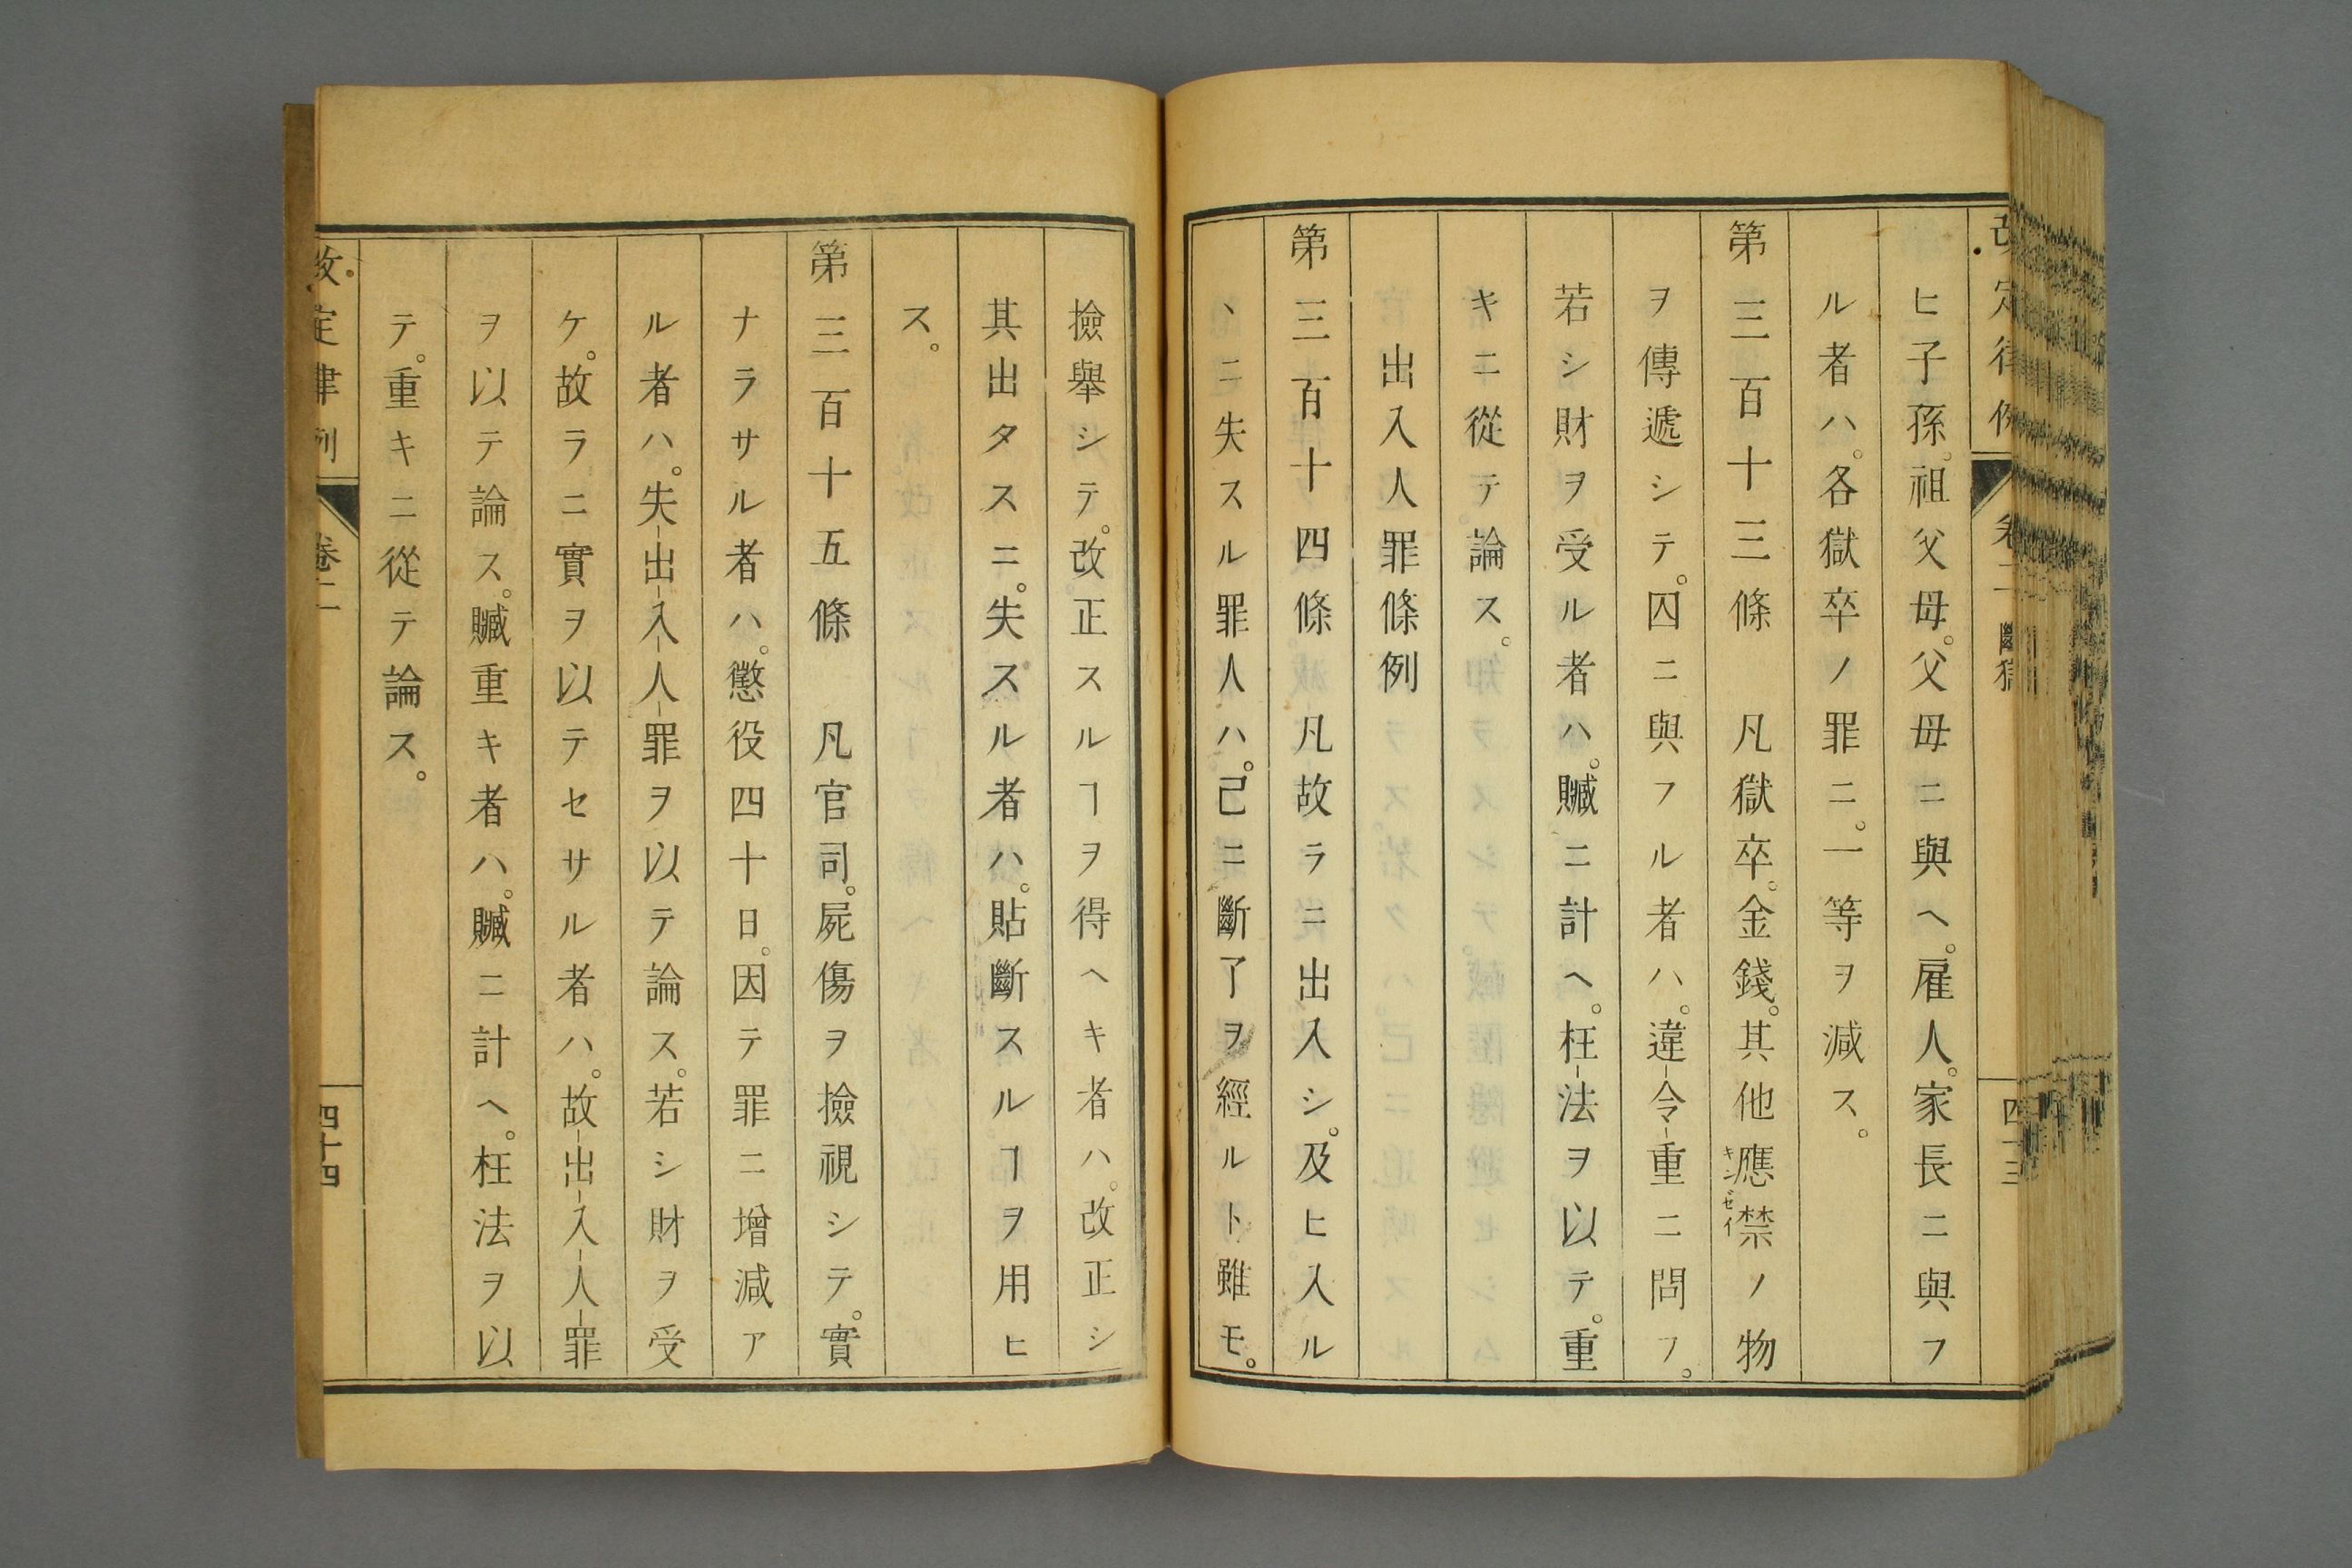 改定律例 卷二 斷獄 四十三
ヒ子孫。祖父母。父母ニ與ヘ。雇人。家長ニ與フ
ル者ハ。各獄卒ノ罪ニ。一等ヲ減ス。
第三百十三條 凡獄卒。金錢。其他應禁キンゼイノ物
ヲ傳遞シテ。囚ニ與フル者ハ。違令重ニ問フ。
若シ財ヲ受ル者ハ。贓ニ計ヘ。枉法ヲ以テ。重
キニ從テ論ス。
出入人罪條例
第三百十四條 凡故ラニ出入シ。及ヒ入ル
ヽニ失スル罪人ハ。己ニ斷了ヲ經ルト雖モ。
撿舉シテ。改正スルヿヲ得ヘキ者ハ。改正シ
其出タスニ。失スル者ハ。貼斷スルヿヲ用ヒ
ス。
第三百十五條 凡官司。屍傷ヲ撿視シテ。實
ナラサル者ハ。懲役四十日。因テ罪ニ增減ア
ル者ハ。失出入人罪ヲ以テ論ス。若シ財ヲ受
ケ。故ラニ實ヲ以テセサル者ハ。故出入人罪
ヲ以テ論ス。贓重キ者ハ。贓ニ計ヘ。枉法ヲ以
テ。重キニ從テ論ス。
改定律例 卷二 四十四